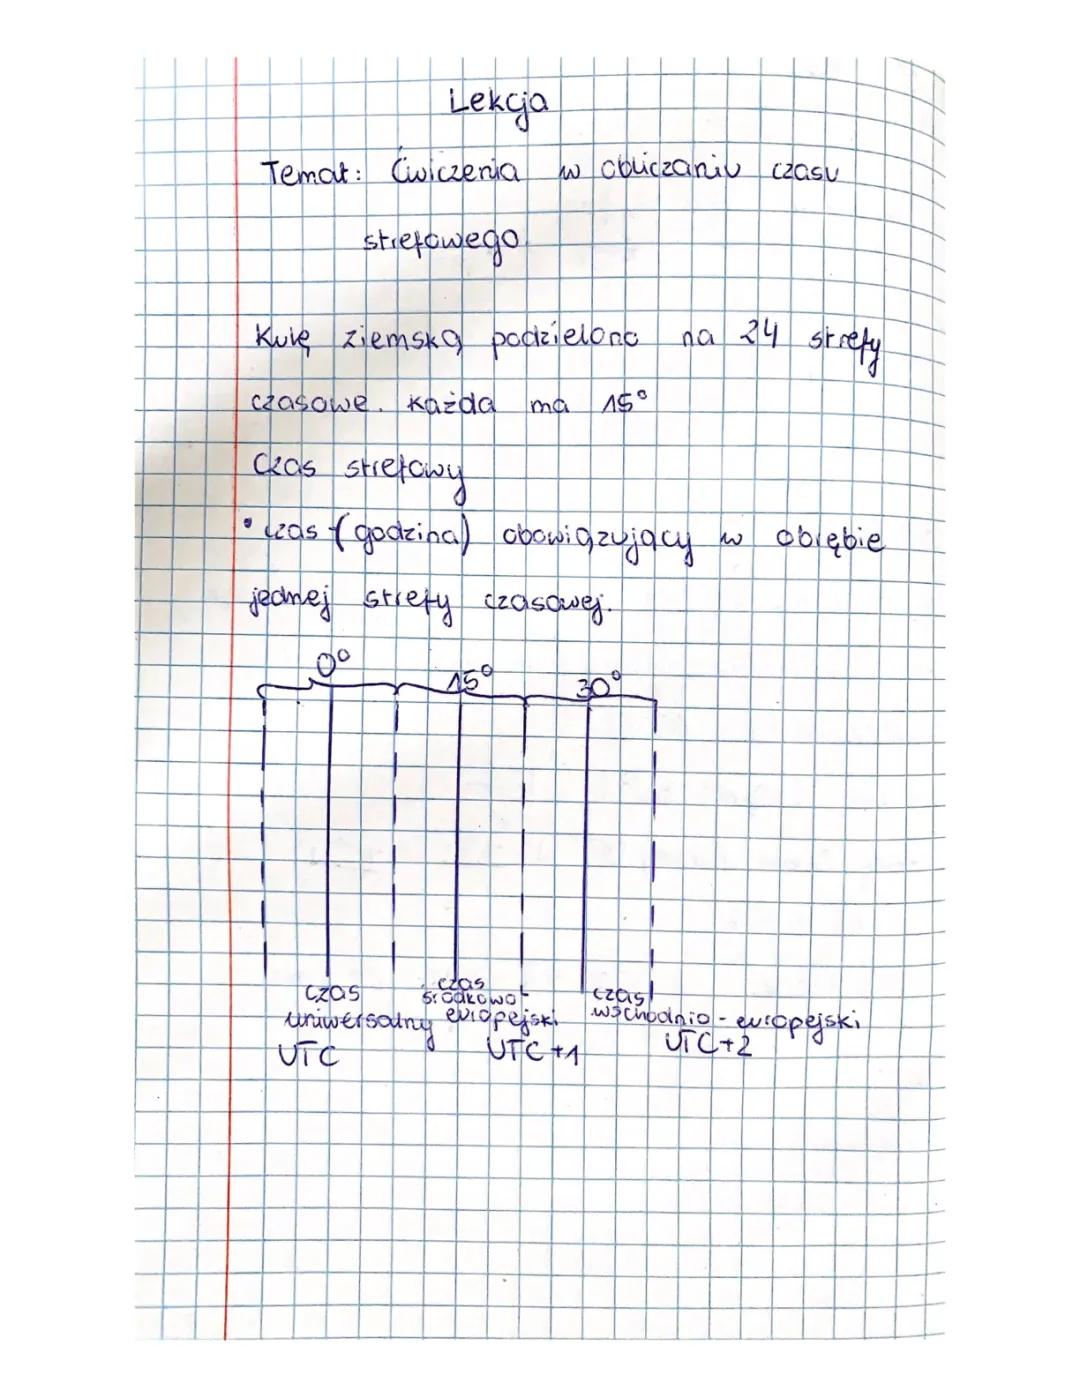 Lekcja
Temat: Ćwiczenia w obliczaniu czasu
strefowego
Kulę ziemską podzielono na 24 strefy
czasowe. Każda ma 15°
Czas strefowy
• czas (godzina) obowiązujący w obrębie
jednej strefy czasowej.
0° 15° 30°
czas
uniwersalny
UTC
czas
środkowo-
europejski
UTC+1
czas
wschodnio-europejski
UTC+2